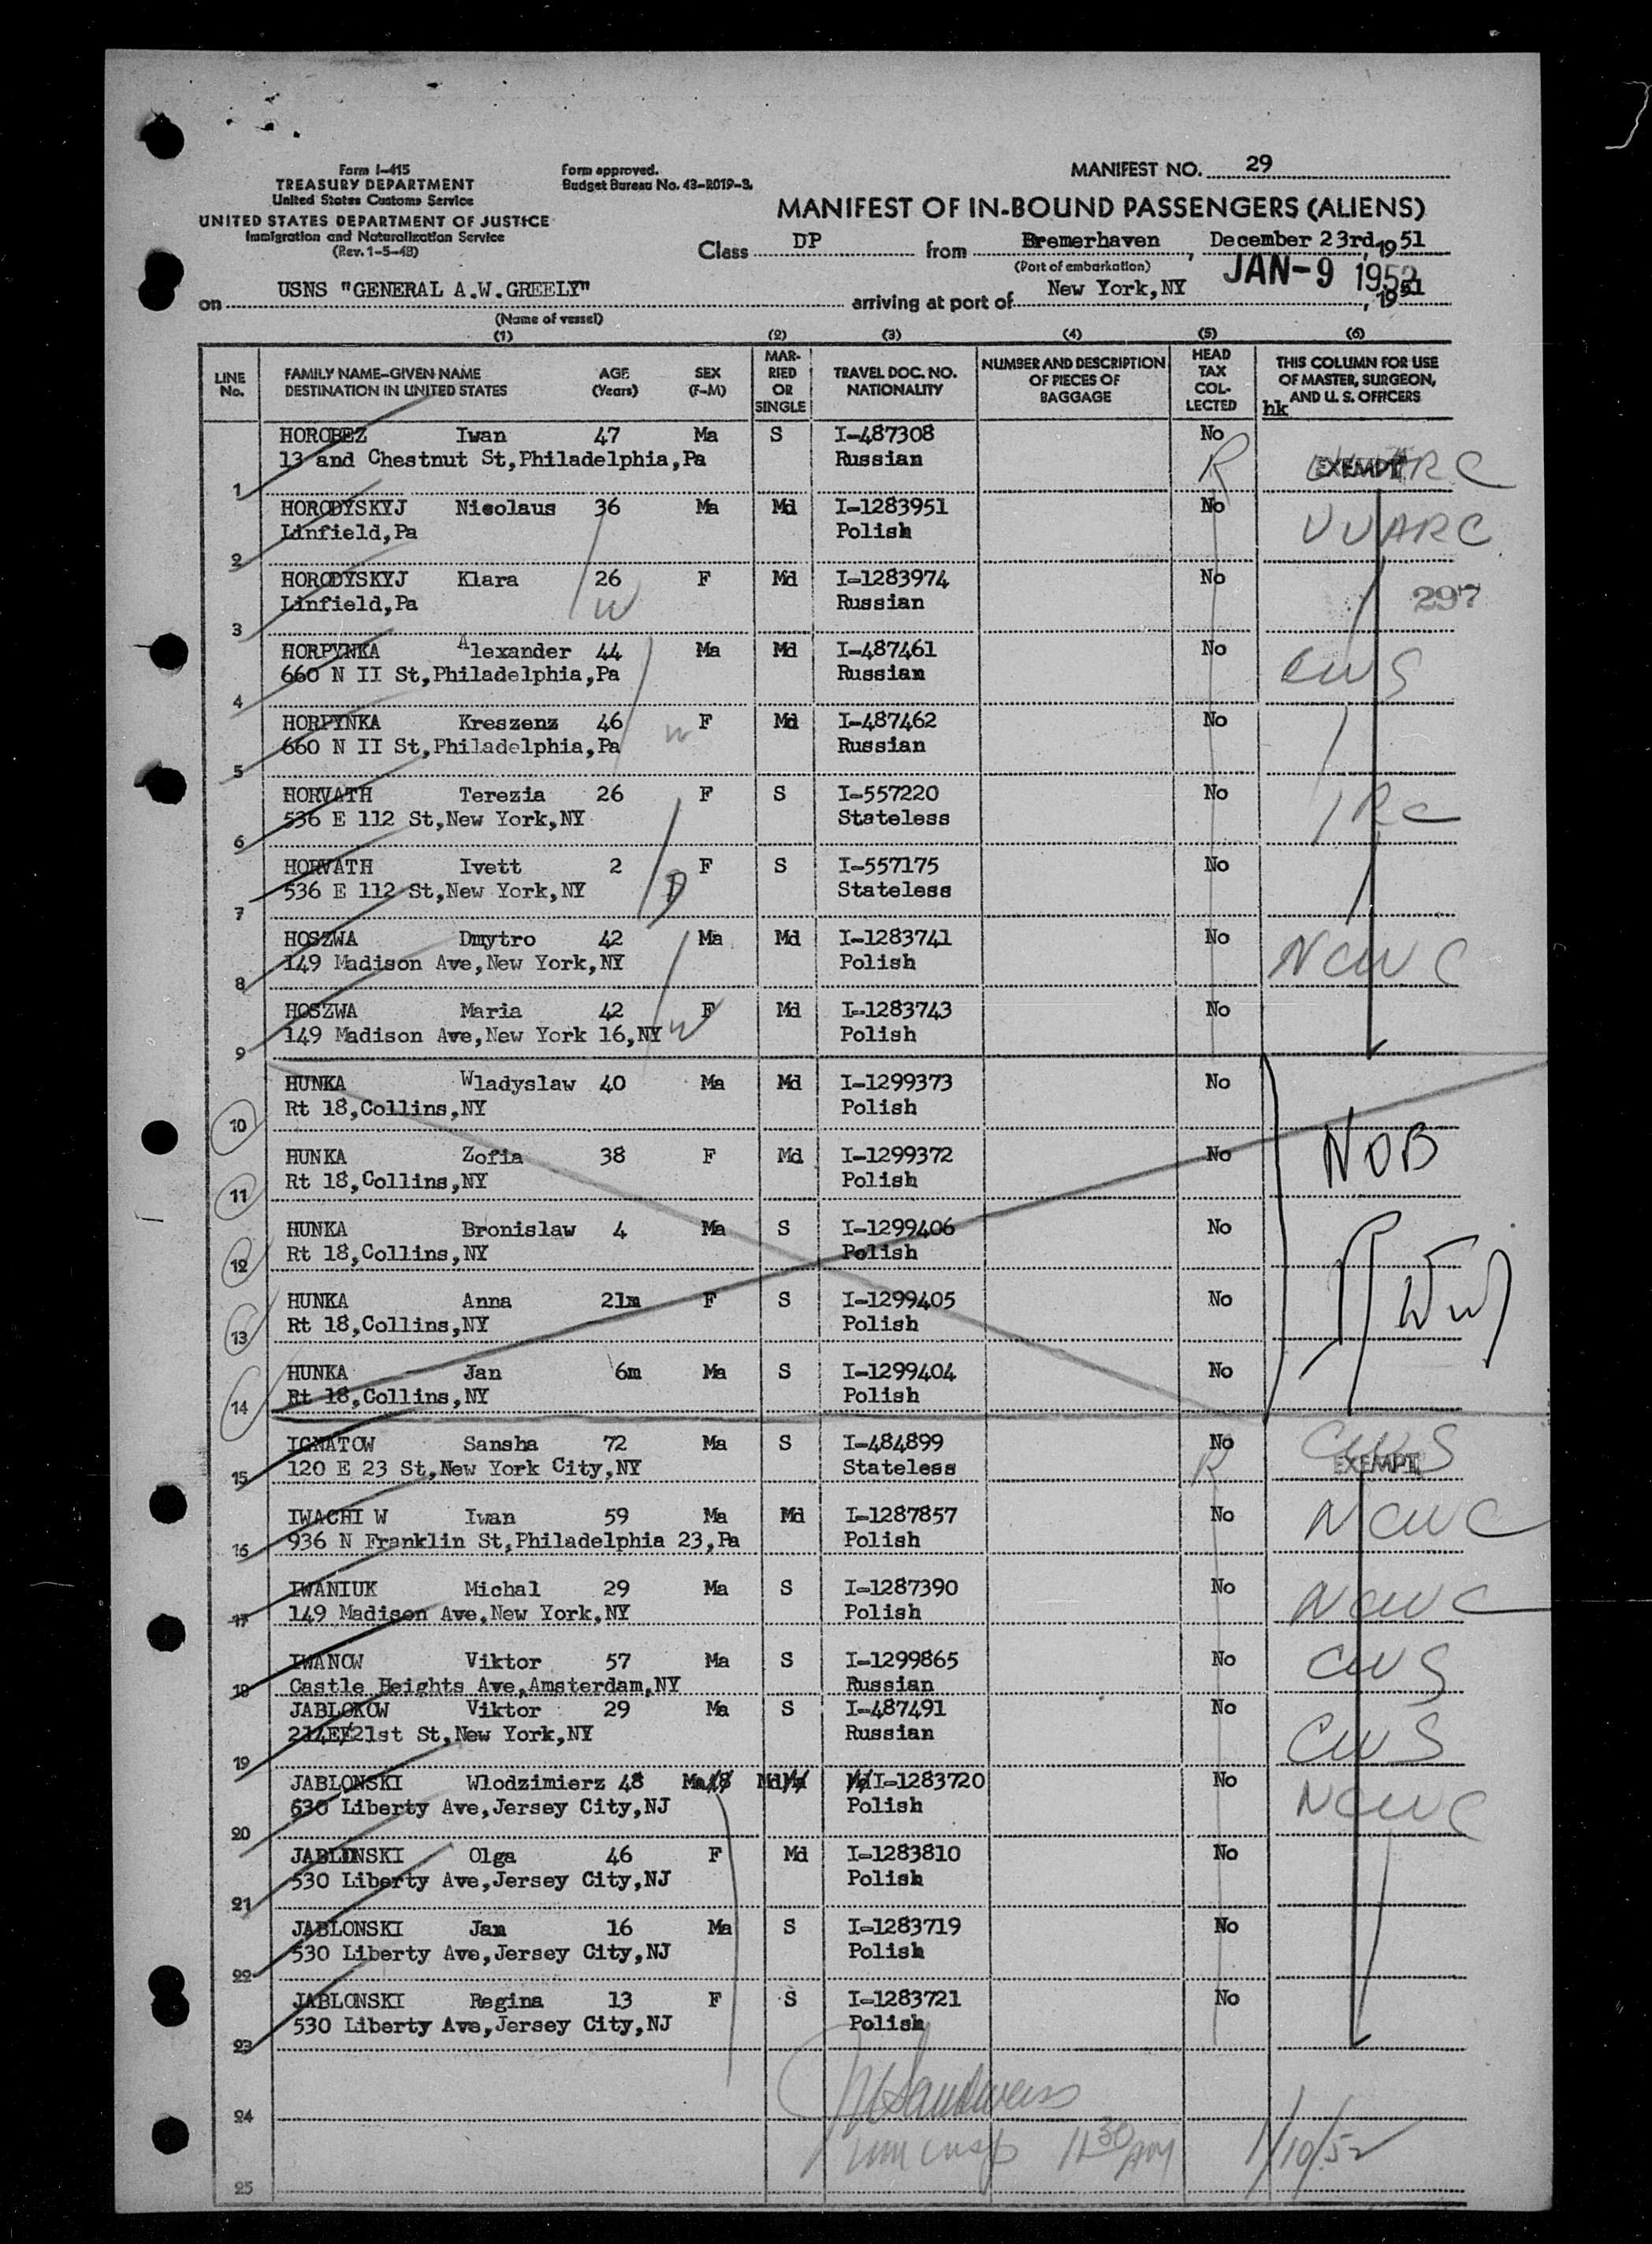 Form I-415
TREASURY DEPARTMENT
United States Customs Service
UNITED STATES DEPARTMENT OF JUSTICE
Immigration and Naturalization Service
(Rev. 1-5-48)
Form approved.
Budget Bureau No. 43-R019-3.
MANIFEST NO. 29
MANIFEST OF IN-BOUND PASSENGERS (ALIENS)
Class DP from Bremerhaven, December 23rd, 1951
(Port of embarkation)
JAN-9 1952
on USNS "GENERAL A.W.GREELY" arriving at port of New York,NY, 1951
(Name of vessel)
(1) (2) (3) (4) (5) (6)
LINE No. FAMILY NAME-GIVEN NAME DESTINATION IN UNITED STATES AGE (Years) SEX (F-M) MARRIED OR SINGLE TRAVEL DOC. NO. NATIONALITY NUMBER AND DESCRIPTION OF PIECES OF BAGGAGE HEAD TAX COLLECTED THIS COLUMN FOR USE OF MASTER, SURGEON, AND U. S. OFFICERS
hk
HOROBEZ Iwan 47 Ma S I-487308 No
13 and Chestnut St,Philadelphia,Pa Russian R EXEMPT
1
HORODYSKYJ Nicolaus 36 Ma Md I-1283951 No
Linfield,Pa Polish UUARC
2
HORODYSKYJ Klara 26 F Md I-1283974 No
Linfield,Pa W Russian 297
3
HORPYNKA Alexander 44 Ma Md I-487461 No
660 N II St,Philadelphia,Pa Russian CWS
4
HORPYNKA Kreszenz 46 F Md I-487462 No
660 N II St,Philadelphia,Pa W Russian
5
HORVATH Terezia 26 F S I-557220 No
536 E 112 St,New York,NY Stateless IRC
6
HORVATH Ivett 2 F S I-557175 No
536 E 112 St,New York,NY Stateless
7
HOSZWA Dmytro 42 Ma Md I-1283741 No
149 Madison Ave,New York,NY Polish NCWC
8
HOSZWA Maria 42 F Md I-1283743 No
149 Madison Ave,New York 16,NY W Polish
9
HUNKA Wladyslaw 40 Ma Md I-1299373 No
Rt 18,Collins,NY Polish
10 NOB
HUNKA Zofia 38 F Md I-1299372 No
Rt 18,Collins,NY Polish
11
HUNKA Bronislaw 4 Ma S I-1299406 No
Rt 18,Collins,NY Polish
12
HUNKA Anna 21m F S I-1299405 No
Rt 18,Collins,NY Polish
13
HUNKA Jan 6m Ma S I-1299404 No
Rt 18,Collins,NY Polish
14
IGNATOW Sansha 72 Ma S I-484899 No CWS
120 E 23 St,New York City,NY Stateless R EXEMPT
15
IWACHI W Iwan 59 Ma Md I-1287857 No NCWC
936 N Franklin St,Philadelphia 23,Pa Polish
16
IWANIUK Michal 29 Ma S I-1287390 No NCWC
149 Madison Ave,New York,NY Polish
17
IWANOW Viktor 57 Ma S I-1299865 No CWS
Castle Heights Ave,Amsterdam,NY Russian
18
JABLOKOW Viktor 29 Ma S I-487491 No
214E 21st St,New York,NY Russian CWS
19
JABLONSKI Wlodzimierz 48 Ma Md I-1283720 No
630 Liberty Ave,Jersey City,NJ Polish NCWC
20
JABLONSKI Olga 46 F Md I-1283810 No
530 Liberty Ave,Jersey City,NJ Polish
21
JABLONSKI Jan 16 Ma S I-1283719 No
530 Liberty Ave,Jersey City,NJ Polish
22
JABLONSKI Regina 13 F S I-1283721 No
530 Liberty Ave,Jersey City,NJ Polish
23
24
11 30 AM 1/10/52
25